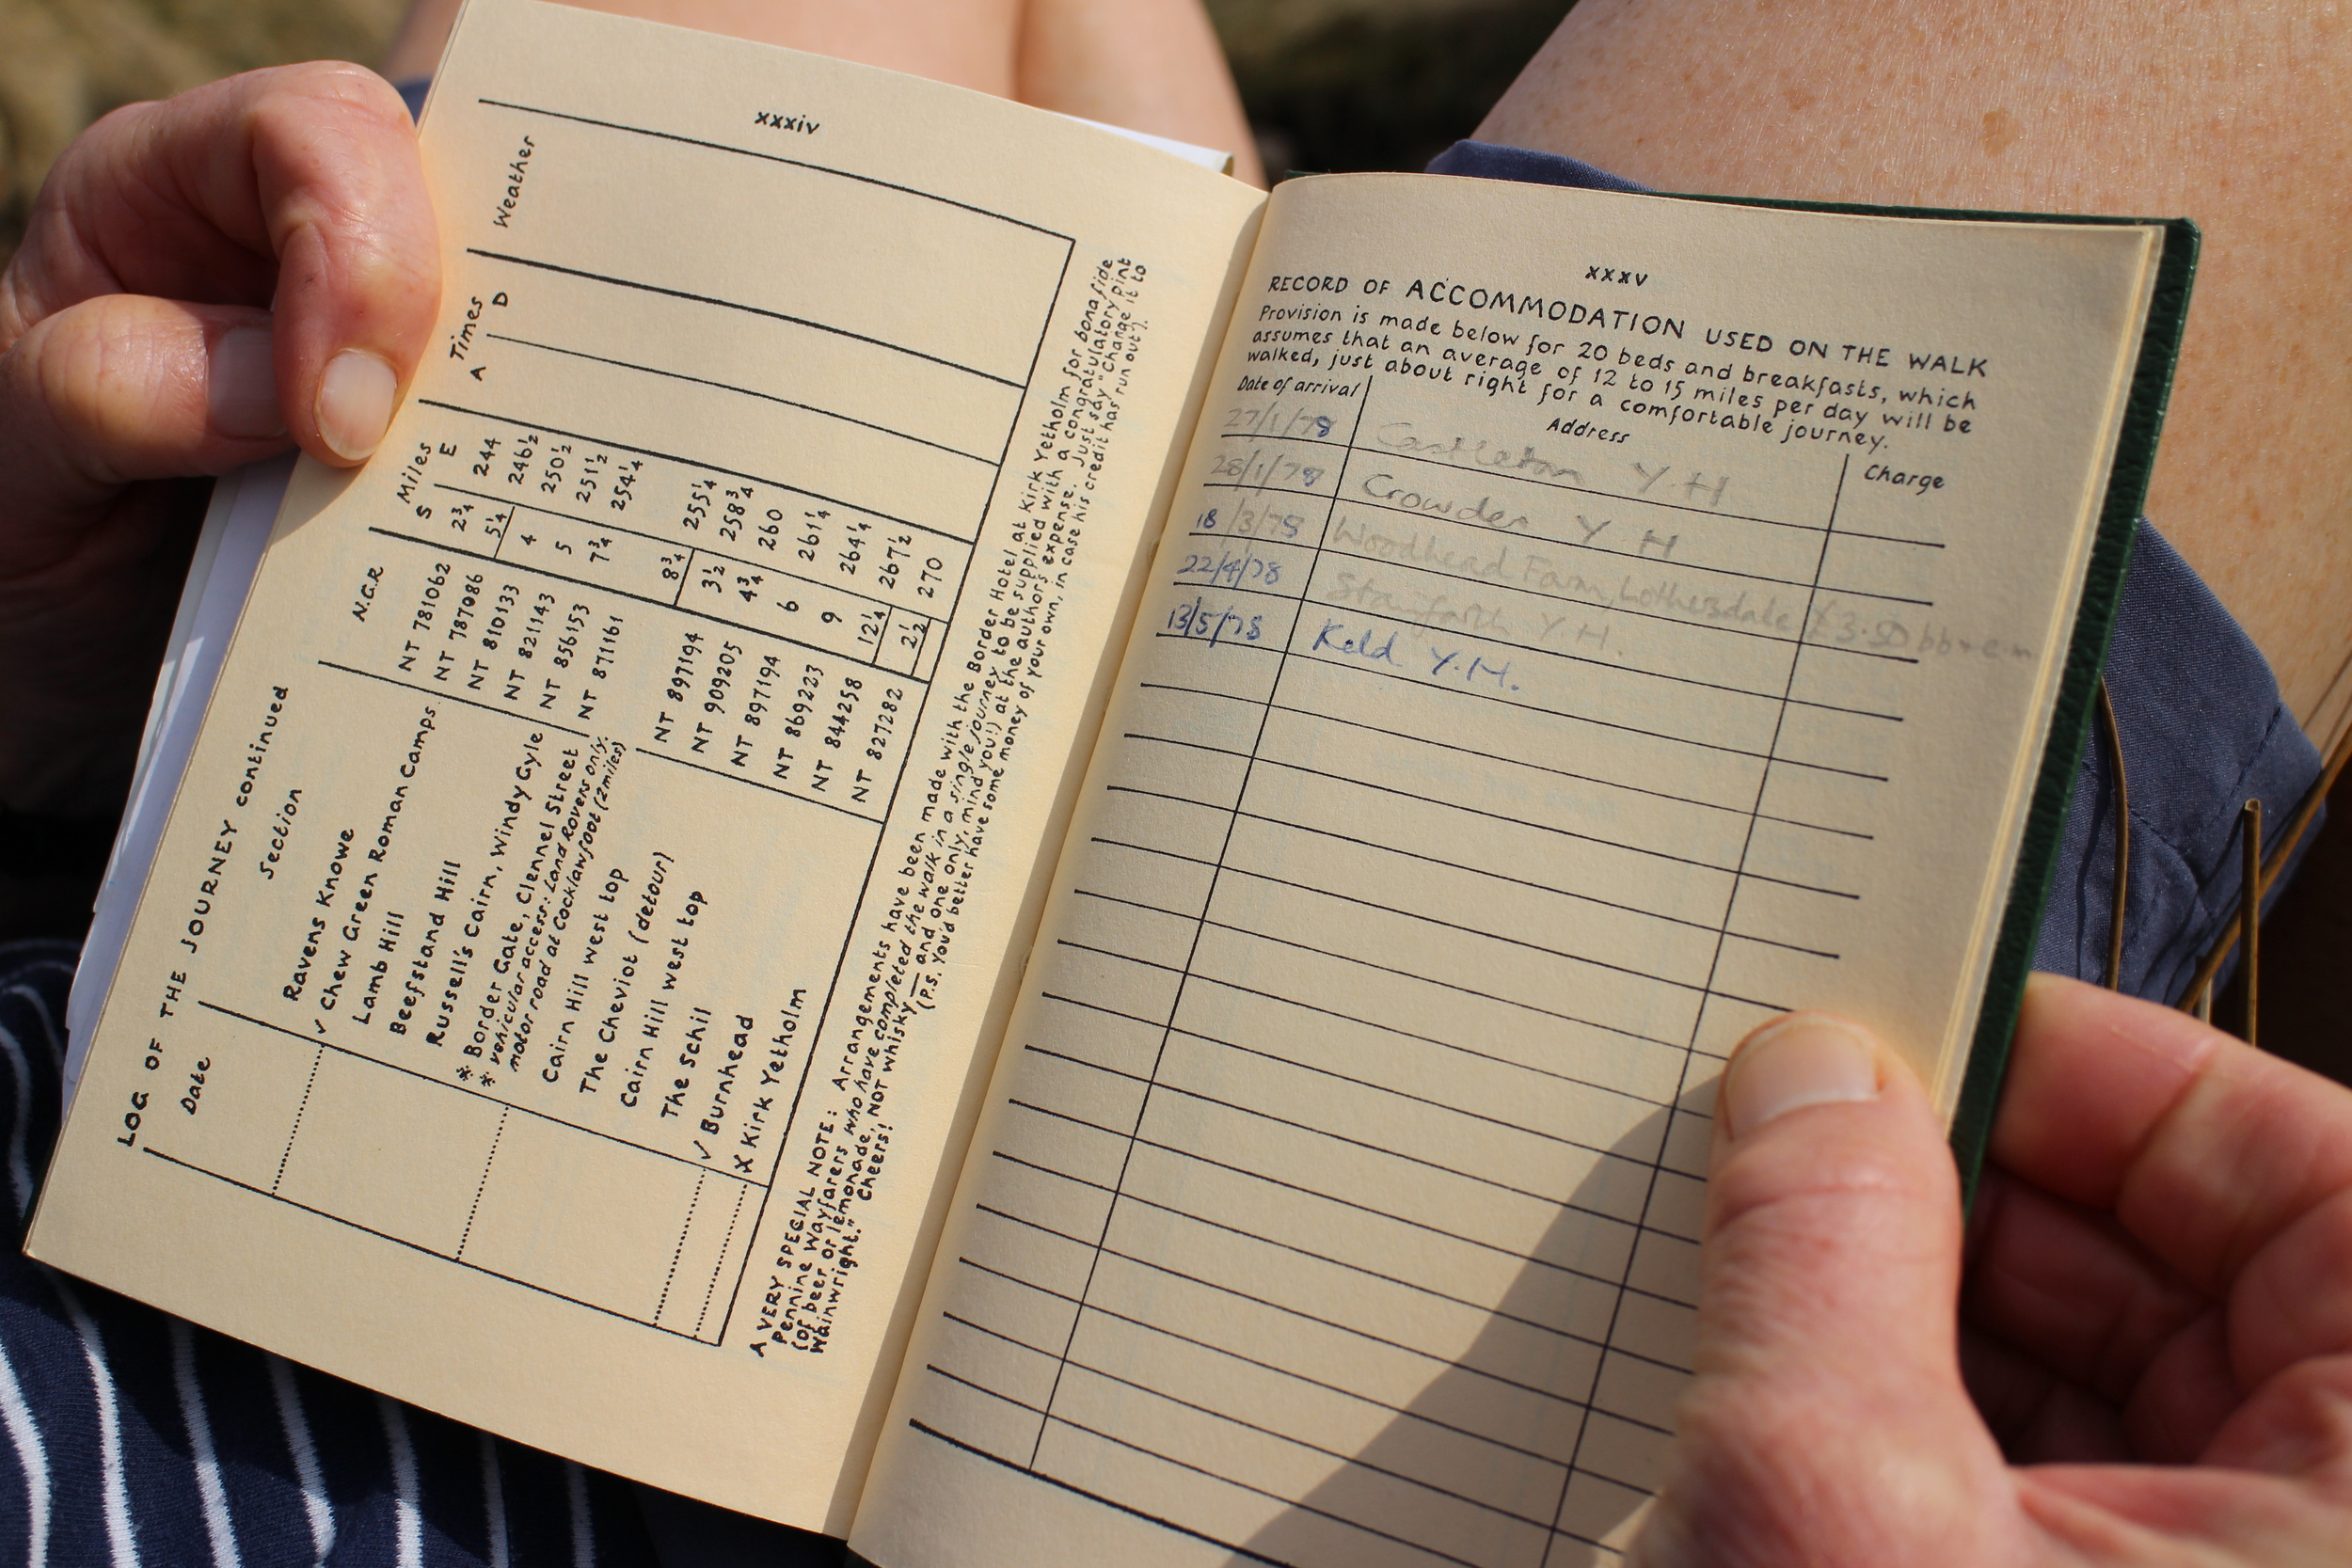 xxxiv
LOG OF THE JOURNEY continued
Date Section N.G.R Miles Times Weather
S E A D
Ravens Knowe NT 781062 2¾ 244
✓ Chew Green Roman Camps NT 787086 5¼ 246½
Lamb Hill NT 810133 4 250½
Beefstand Hill NT 821143 5 251½
Russell's Cairn, Windy Gyle NT 856153 7¾ 254¼
* Border Gate, Clennel Street NT 871161 8¾ 255¼
* vehicular access: Land Rovers only.
motor road at Cocklawfoot (2 miles)
Cairn Hill west top NT 897194 3½ 258¾
The Cheviot (detour) NT 909205 4¾ 260
Cairn Hill west top NT 897194 6 261¼
The Schil NT 869223 9 264¼
✓ Burnhead NT 844258 12¼ 267½
X Kirk Yetholm NT 827282 2½ 270
A VERY SPECIAL NOTE: Arrangements have been made with the Border Hotel at Kirk Yetholm for bona fide
Pennine Wayfarers who have completed the walk in a single journey to be supplied with a congratulatory pint
(of beer or lemonade, NOT whisky — and one only, mind you!) at the author's expense. Just say "Charge it to
Wainwright." Cheers! (P.S. You'd better have some money of your own, in case his credit has run out).
xxxv
RECORD OF ACCOMMODATION USED ON THE WALK
Provision is made below for 20 beds and breakfasts, which
assumes that an average of 12 to 15 miles per day will be
walked, just about right for a comfortable journey.
Date of arrival Address Charge
27/1/78 Castleton Y H
28/1/78 Crowden Y H
18/3/78 Woodhead Farm, Lothersdale £3.50 bb + e.m
22/4/78 Stainforth Y.H.
13/5/78 Keld Y.H.